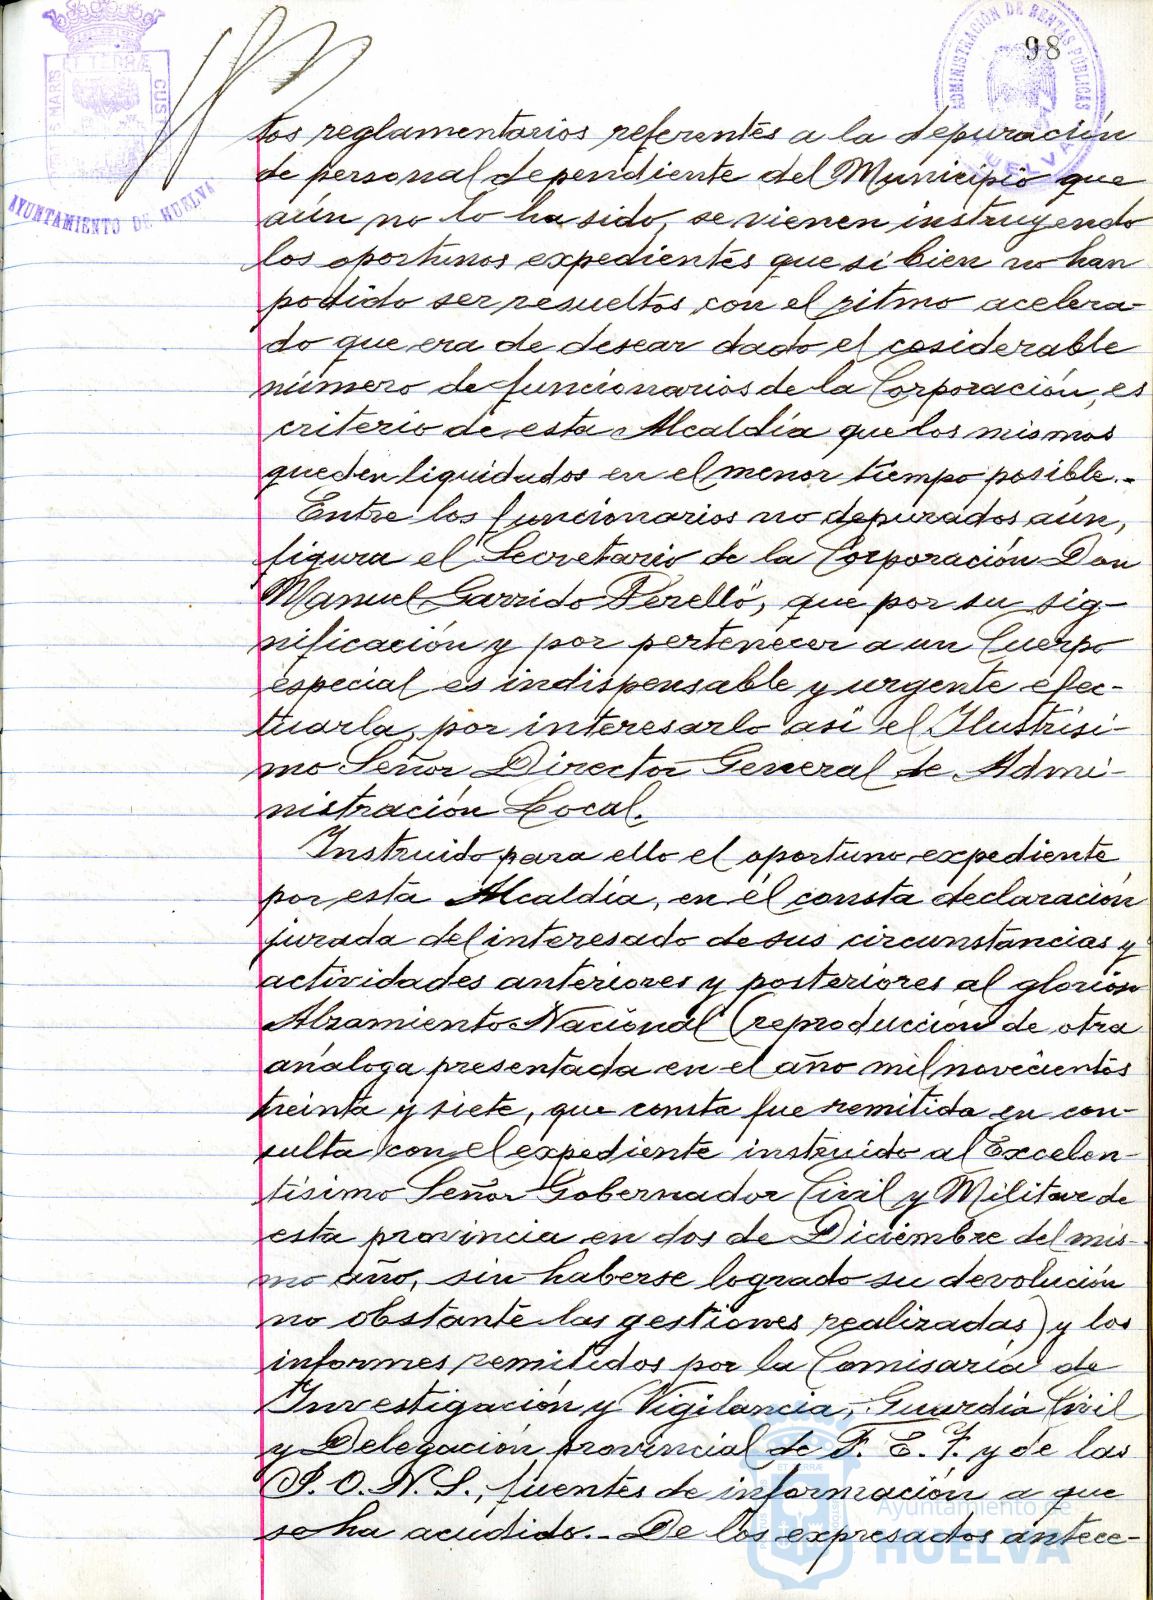 98
MARIS ET TERRÆ CUS
AYUNTAMIENTO DE HUELVA
ADMINISTRACIÓN DE RENTAS PÚBLICAS
HUELVA
tos reglamentarios referentes a la depuración
de personal dependiente del Municipio que
aún no lo ha sido, se vienen instruyendo
los oportunos expedientes que si bien no han
podido ser resueltos con el ritmo acelera-
do que era de desear dado el cosiderable
número de funcionarios de la Corporación, es
criterio de esta Alcaldía que los mismos
queden liquidados en el menor tiempo posible.-
Entre los funcionarios no depurados aún,
figura el Secretario de la Corporación Don
Manuel Garrido Perelló, que por su sig-
nificación y por pertenecer a un Cuerpo
especial es indispensable y urgente efec-
tuarla, por interesarlo así el Ilustrísi-
mo Señor Director General de Admi-
nistración Local.
Instruido para ello el oportuno expediente
por esta Alcaldía, en él consta declaración
jurada del interesado de sus circunstancias y
actividades anteriores y posteriores al glorioso
Alzamiento Nacional (reproducción de otra
análoga presentada en el año mil novecientos
treinta y siete, que consta fue remitida en con-
sulta con el expediente instruido al Excelen-
tísimo Señor Gobernador Civil y Militar de
esta provincia en dos de Diciembre del mis-
mo año, sin haberse logrado su devolución
no obstante las gestiones realizadas) y los
informes remitidos por la Comisaría de
Investigación y Vigilancia, Guardia Civil
y Delegación provincial de F. E. T. y de las
J. O. N. S., fuentes de información a que
se ha acudido.- De los expresados antece-
Ayuntamiento de
HUELVA